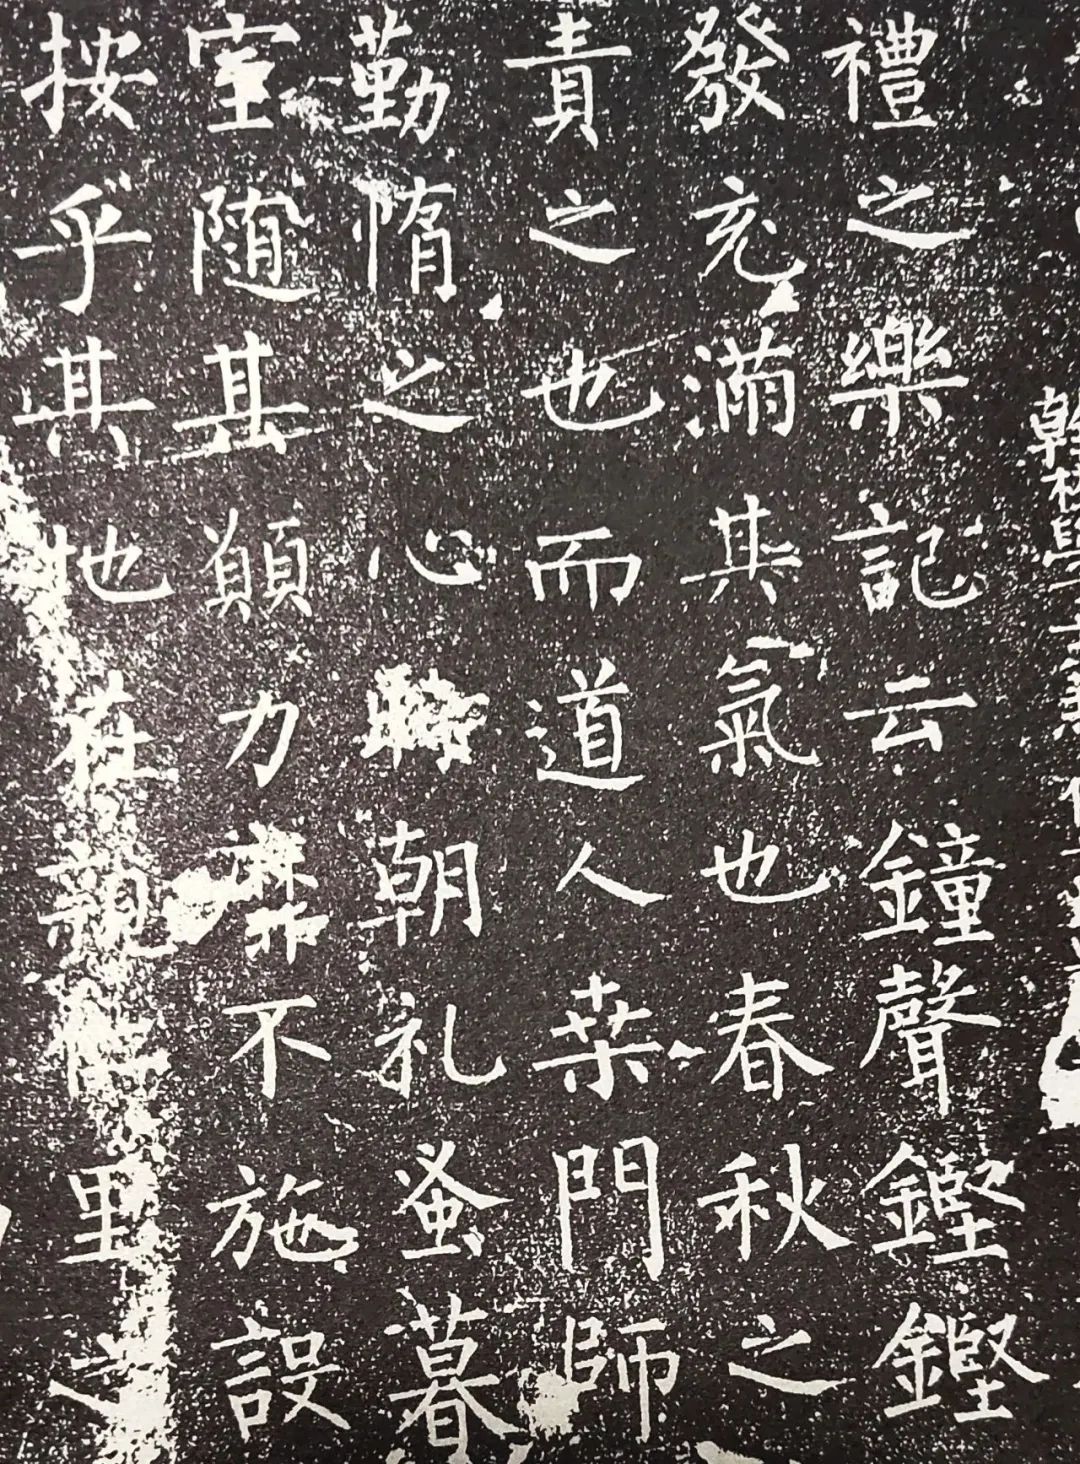 翰林學士
禮之樂記云鐘聲鏗鏗
發充滿其氣也春秋之
責之也而道人桒門師
勤惰之心時朝礼蚤暮
室随其願力靡不施設
按乎其地在親仁里之